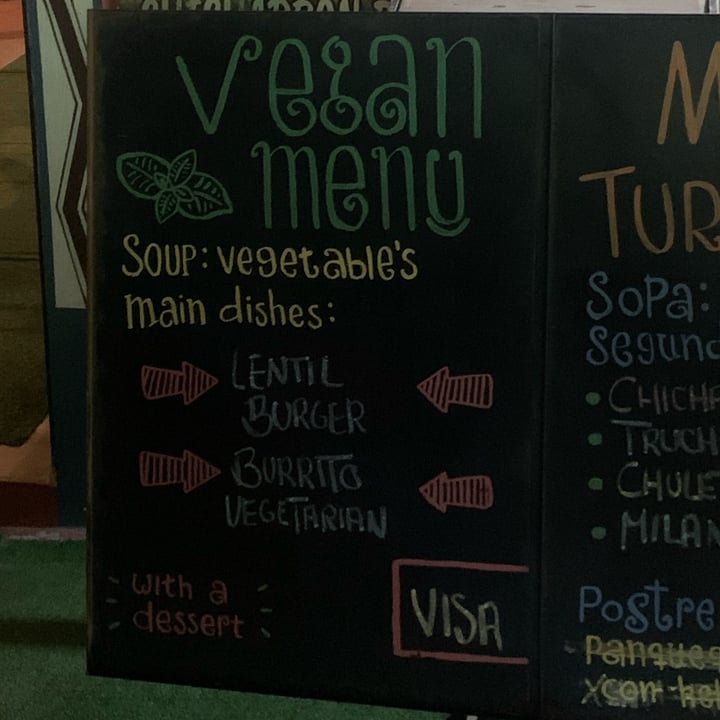 vegan
menu
SOUP: vegetable's
main dishes:
LENTIL
BURGER
BURRITO
VEGETARIAN
with a
dessert
VISA
M
TUR
SOPA:
Segund
CHICH
TRUCH
CHULE
MILAN
Postre
Panque